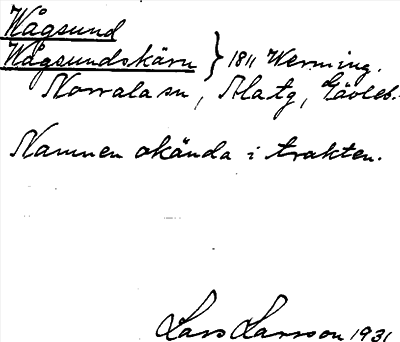 Wågsund
Wågsundskärn } 1811 Werming.
Norrala sn, Alatg, Gävleb.
Namnen okända i trakten.
Lars Larsson 1931